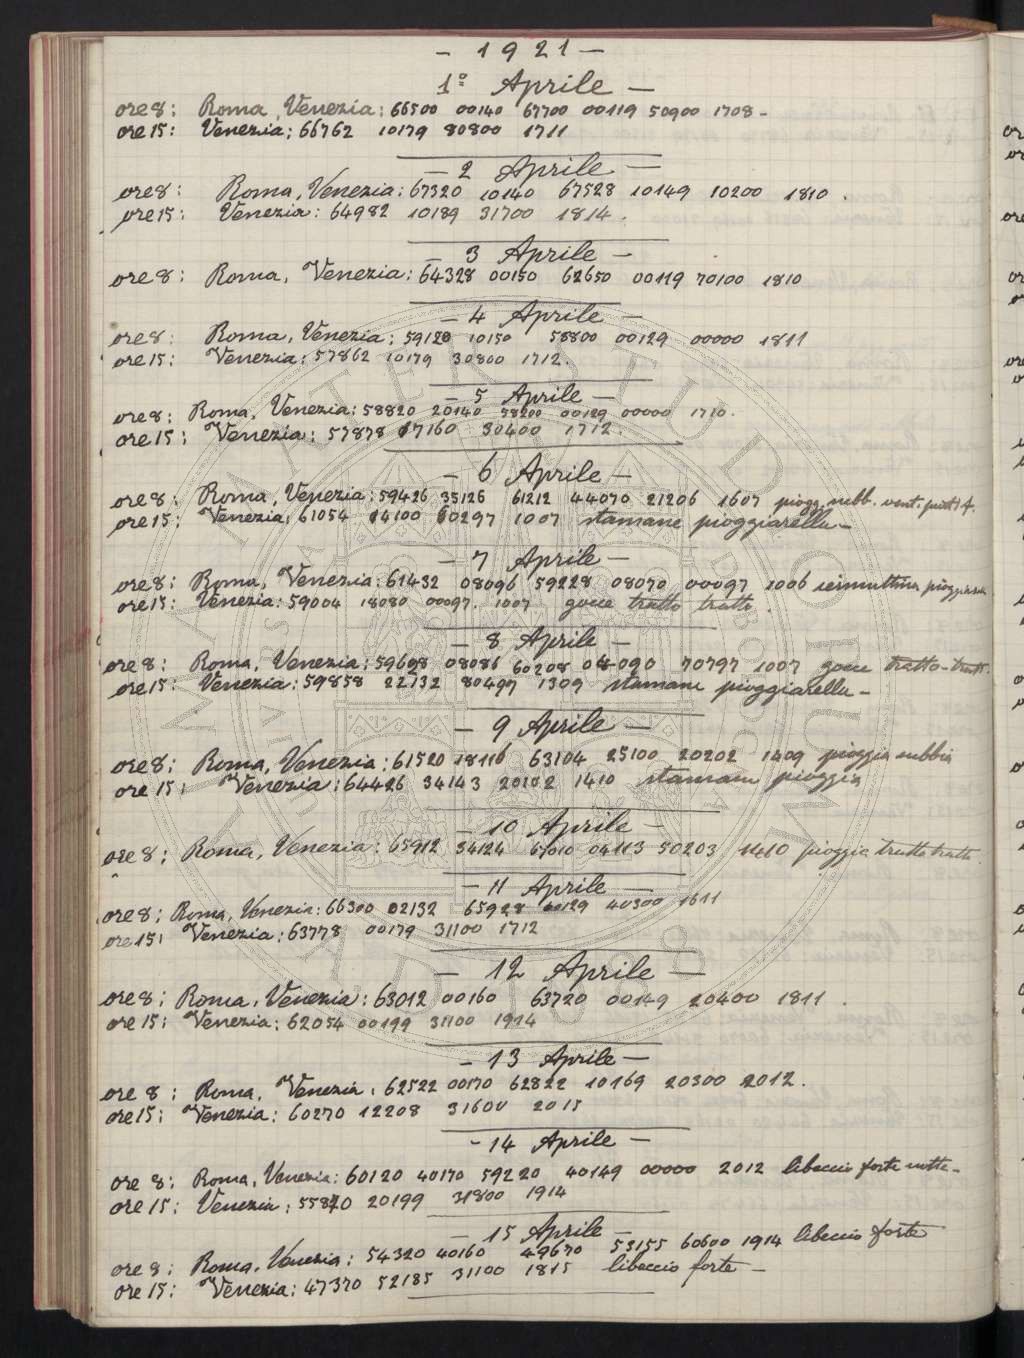 - 1921 -
1° Aprile -
ore 8: Roma, Venezia: 66500 00140 67700 00119 50900 1708 -
ore 15: Venezia: 66762 10179 80800 1711
- 2 Aprile -
ore 8: Roma, Venezia: 67320 10140 67528 10149 10200 1810.
ore 15: Venezia: 64982 10189 31700 1814.
- 3 Aprile -
ore 8: Roma, Venezia: 64328 00150 62650 00119 70100 1810
- 4 Aprile -
ore 8: Roma, Venezia: 59120 10150 58800 00129 00000 1811
ore 15: Venezia: 57862 10179 30800 1712.
- 5 Aprile -
ore 8: Roma, Venezia: 58820 20140 58200 00129 00000 1710.
ore 15: Venezia: 57878 17160 30400 1712.
- 6 Aprile -
ore 8: Roma, Venezia: 59426 35126 61212 44070 21206 1607 piogg. nebb. vent.
ore 15: Venezia: 61054 14100 60297 1007 stamane pioggiarella -
- 7 Aprile -
ore 8: Roma, Venezia: 61432 08096 59228 08070 00097 1006
ore 15: Venezia: 59004 18080 00097. 1007 gocce tratto tratto.
- 8 Aprile -
ore 8: Roma, Venezia: 59608 08086 60208 04090 70797 1007 gocce tratto-tratt.
ore 15: Venezia: 59858 22132 80497 1309 stamane pioggiarella -
- 9 Aprile -
ore 8: Roma, Venezia: 61520 18116 63104 25100 20202 1409 pioggia nebbia
ore 15: Venezia: 64426 34143 20102 1410 stamane pioggia
- 10 Aprile -
ore 8: Roma, Venezia: 65912 34124 04113 50203 pioggia tratto tratto
- 11 Aprile -
ore 8: Roma, Venezia: 66300 02132 65928 40300 1611
ore 15: Venezia: 63778 00179 31100 1712
- 12 Aprile -
ore 8: Roma, Venezia: 63012 00160 63720 00149 20400 1811.
ore 15: Venezia: 62054 00199 31100 1914
- 13 Aprile -
ore 8: Roma, Venezia: 62522 00170 62822 10169 20300 2012.
ore 15: Venezia: 60270 12208 31600 2015
- 14 Aprile -
ore 8: Roma, Venezia: 60120 40170 59220 40149 00000 2012 libeccio forte notte -
ore 15: Venezia: 55870 20199 31800 1914
- 15 Aprile -
ore 8: Roma, Venezia: 54320 40160 49670 53155 60600 1914 libeccio forte
ore 15: Venezia: 47370 52185 31100 1815 libeccio forte -